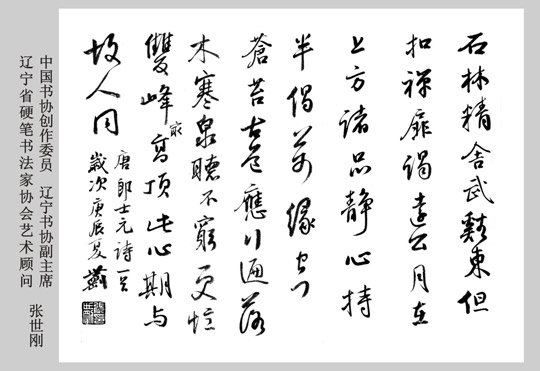 石林精舍武谿東夜
扣禅扉谒遠公月在
上方諸品静心持
半偈萬緣空
蒼苔古道應行遍落
木寒泉聽不窮更憶
雙峰最高頂此心期与
故人同
唐郎士元詩一首
歲次庚辰夏
中国书协创作委员 辽宁书协副主席
辽宁省硬笔书法家协会艺术顾问 张世刚